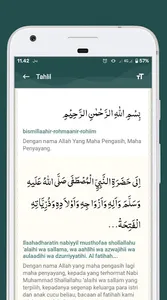 11.42
Tahlil
بِسْمِ اللهِ الرَّحْمٰنِ الرَّحِيْمِ
bismillaahir-rohmaanir-rohiim
Dengan nama Allah Yang Maha Pengasih, Maha
Penyayang.
اِلَى حَضْرَةِ النَّبِيِّ الْمُصْطَفَى صَلَّى اللهُ عَلَيْهِ
وَسَلَّمَ وَآلِهِ وَأَزْوَاجِهِ وَأَوْلَادِهِ وَذُرِّيَّاتِهِ
الْفَاتِحَةْ...
Ilaahadharatin nabiyyil musthofaa shollallahu
'alaihi wa sallama, wa aalihi wa azwajihi wa
aulaadihi wa dzurriyyatihi. Al fatihah...
Dengan nama Allah yang maha pengasih lagi
maha penyayang, kepada yang terhormat Nabi
Muhammad Shollallahu 'alaihi wa
sallam, segenap keluarga para istri